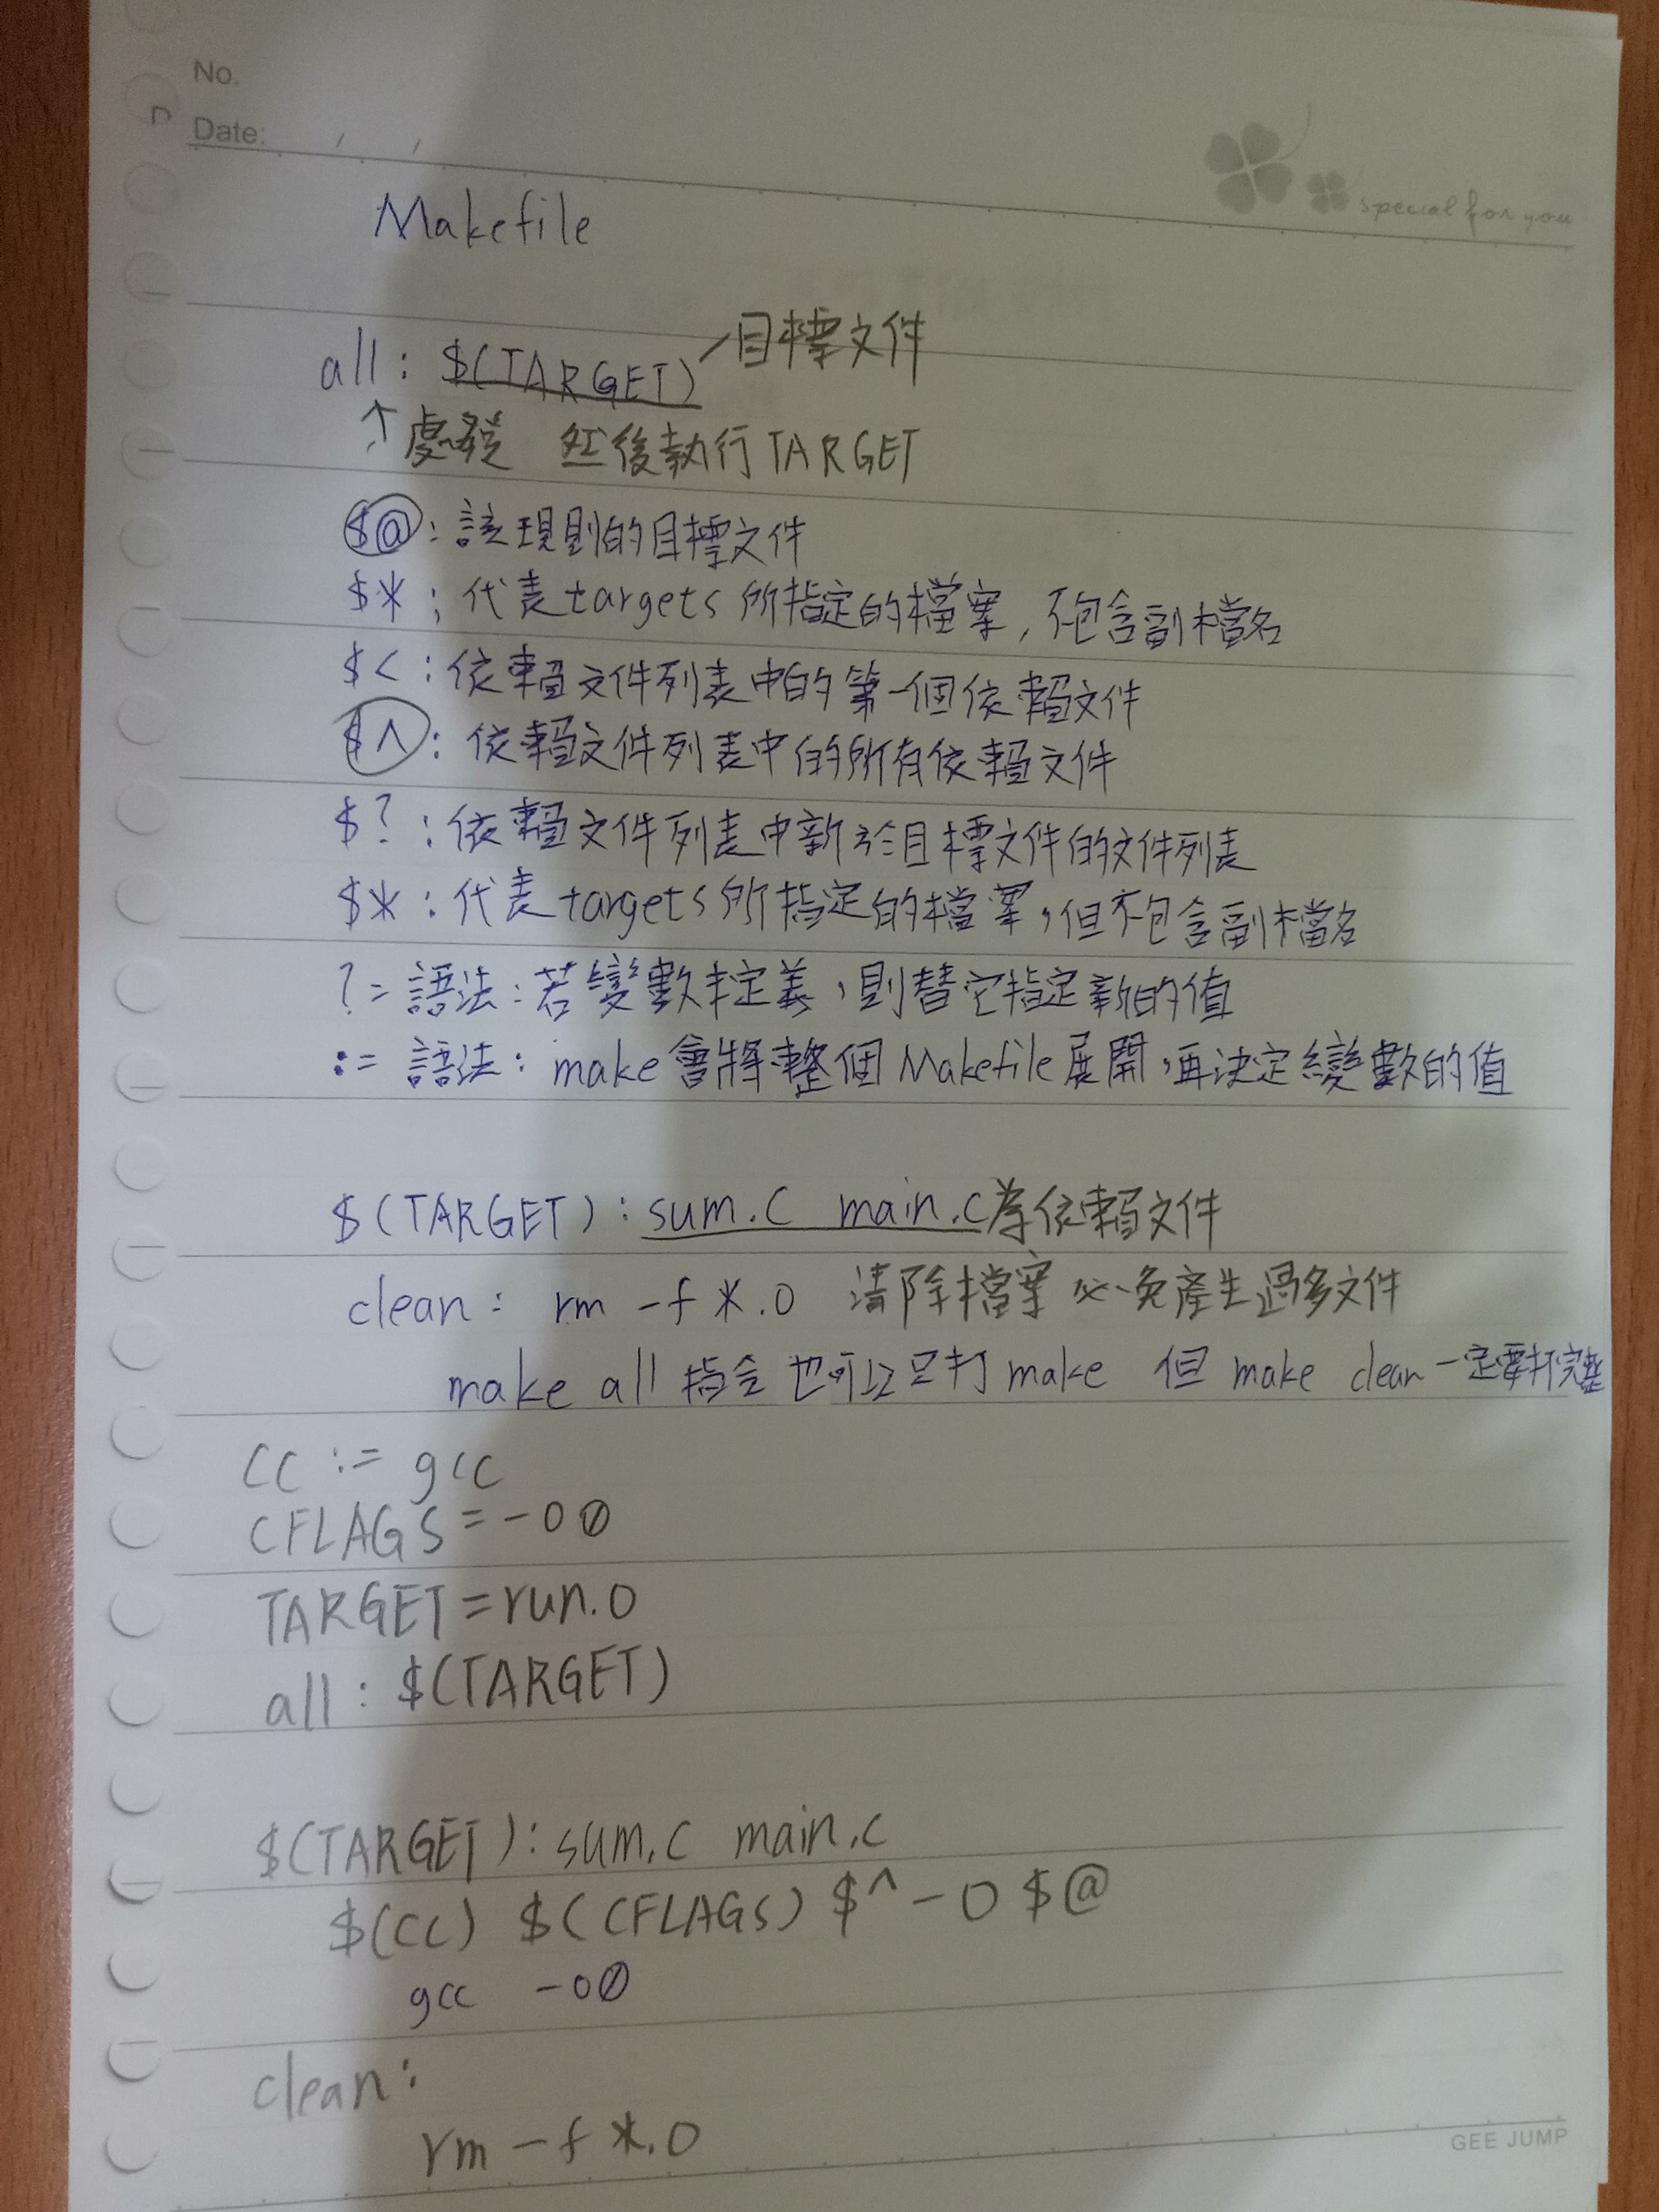 No.
Date: / /
special for you
Makefile
all : $(TARGET) 目標文件
↑ 處發 然後執行TARGET
$@ : 該規則的目標文件
$* : 代表targets所指定的檔案, 不包含副檔名
$< : 依賴文件列表中的第一個依賴文件
$^ : 依賴文件列表中的所有依賴文件
$? : 依賴文件列表中新於目標文件的文件列表
$* : 代表targets所指定的檔案,但不包含副檔名
?= 語法:若變數未定義,則替它指定新的值
:= 語法: make會將整個Makefile展開,再決定變數的值
$(TARGET) : sum.c main.c為依賴文件
clean : rm -f *.o 清除檔案 以免產生過多文件
make all 指令也可以只打 make 但 make clean 一定要打完整
CC := gcc
CFLAGS = -O0
TARGET = run.o
all : $(TARGET)
$(TARGET) : sum.c main.c
$(CC) $(CFLAGS) $^ -o $@
gcc -O0
clean :
rm -f *.o
GEE JUMP